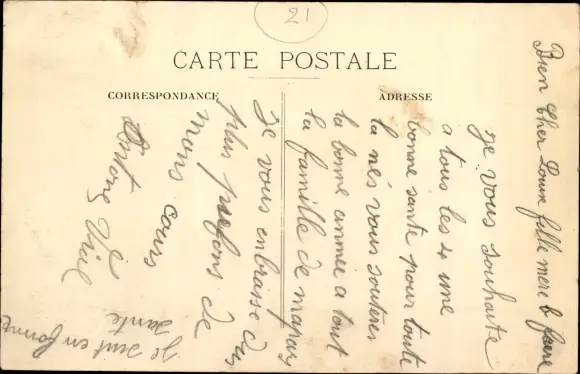 21
CARTE POSTALE
CORRESPONDANCE
ADRESSE
Bien Cher Louise fille mere b faere
je vous souhaite
a tous les 4 une
bonne sante pour toute
la nés vous souteres
la bonne année a tout
la famille de mapay
Je vous embrasse du
plus profons de
mons ceurs
Antoine Viel
je suit en forme
sante